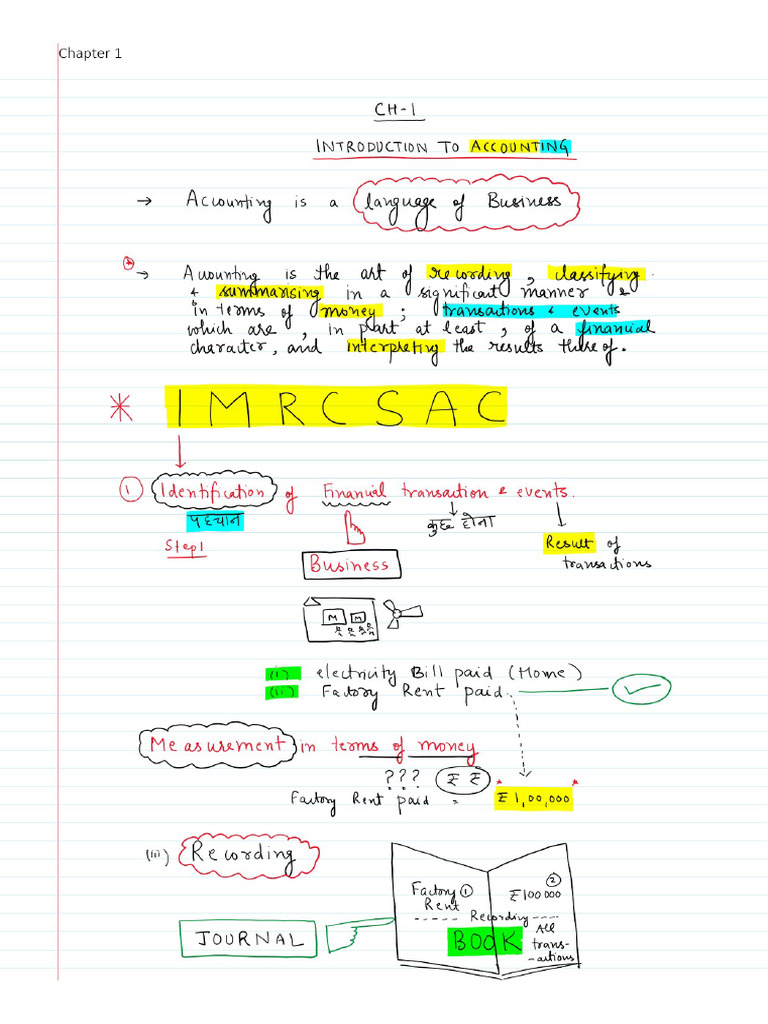 Chapter 1
CH-1
INTRODUCTION TO ACCOUNTING
→ Accounting is a language of Business
* → Accounting is the art of recording, classifying
& summarising in a significant manner &
in terms of money; transactions & events
which are, in part at least, of a financial
character, and interpreting the results thereof.
* I M R C S A C
1 Identification of Financial transaction & events.
पहचान
कुछ होना
Step 1
Result of
transactions
Business
M M
(i) electricity Bill paid (Home)
(ii) Factory Rent paid.
Measurement in terms of money
? ? ? ₹ ₹
Factory Rent paid = ₹ 1,00,000
(iii) Recording
Factory 1
Rent
2
₹100000
Recording
JOURNAL
BOOK
All
trans-
-actions